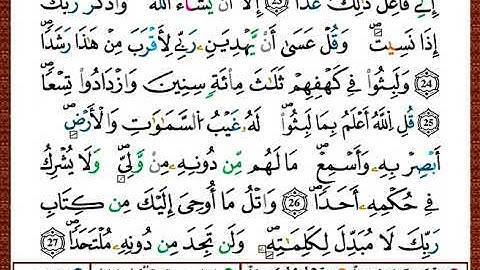 إِنِّے فَاعِلٌ ذَٰلِكَ غَدًا 23 إِلَّا أَنْ يَّشَآءَ اَللَّهُ وَاذْكُر رَّبَّكَ
إِذَا نَسِيتَ وَقُلْ عَسَىٰ أَنْ يَّهْدِيَنِۦ رَبِّے لِأَقْرَبَ مِنْ هَٰذَا رَشَدًا
24 وَلَبِثُوا۟ فِے كَهْفِهِمْ ثَلَٰثَ مِاْئَةٍ سِنِينَ وَازْدَادُوا۟ تِسْعًا
25 قُلِ اِللَّهُ أَعْلَمُ بِمَا لَبِثُوا۟ لَهُۥ غَيْبُ اُلسَّمَٰوَٰتِ وَالْأَرْضِ
أَبْصِرْ بِهِۦ وَأَسْمِعْ مَا لَهُم مِّن دُونِهِۦ مِنْ وَّلِيٍّ وَلَا يُشْرِكُ
فِے حُكْمِهِۦٓ أَحَدًا 26 وَاتْلُ مَآ أُوحِيَ إِلَيْكَ مِن كِتَابِ
رَبِّكَ لَا مُبَدِّلَ لِكَلِمَٰتِهِۦ وَلَن تَجِدَ مِن دُونِهِۦ مُلْتَحَدًا 27